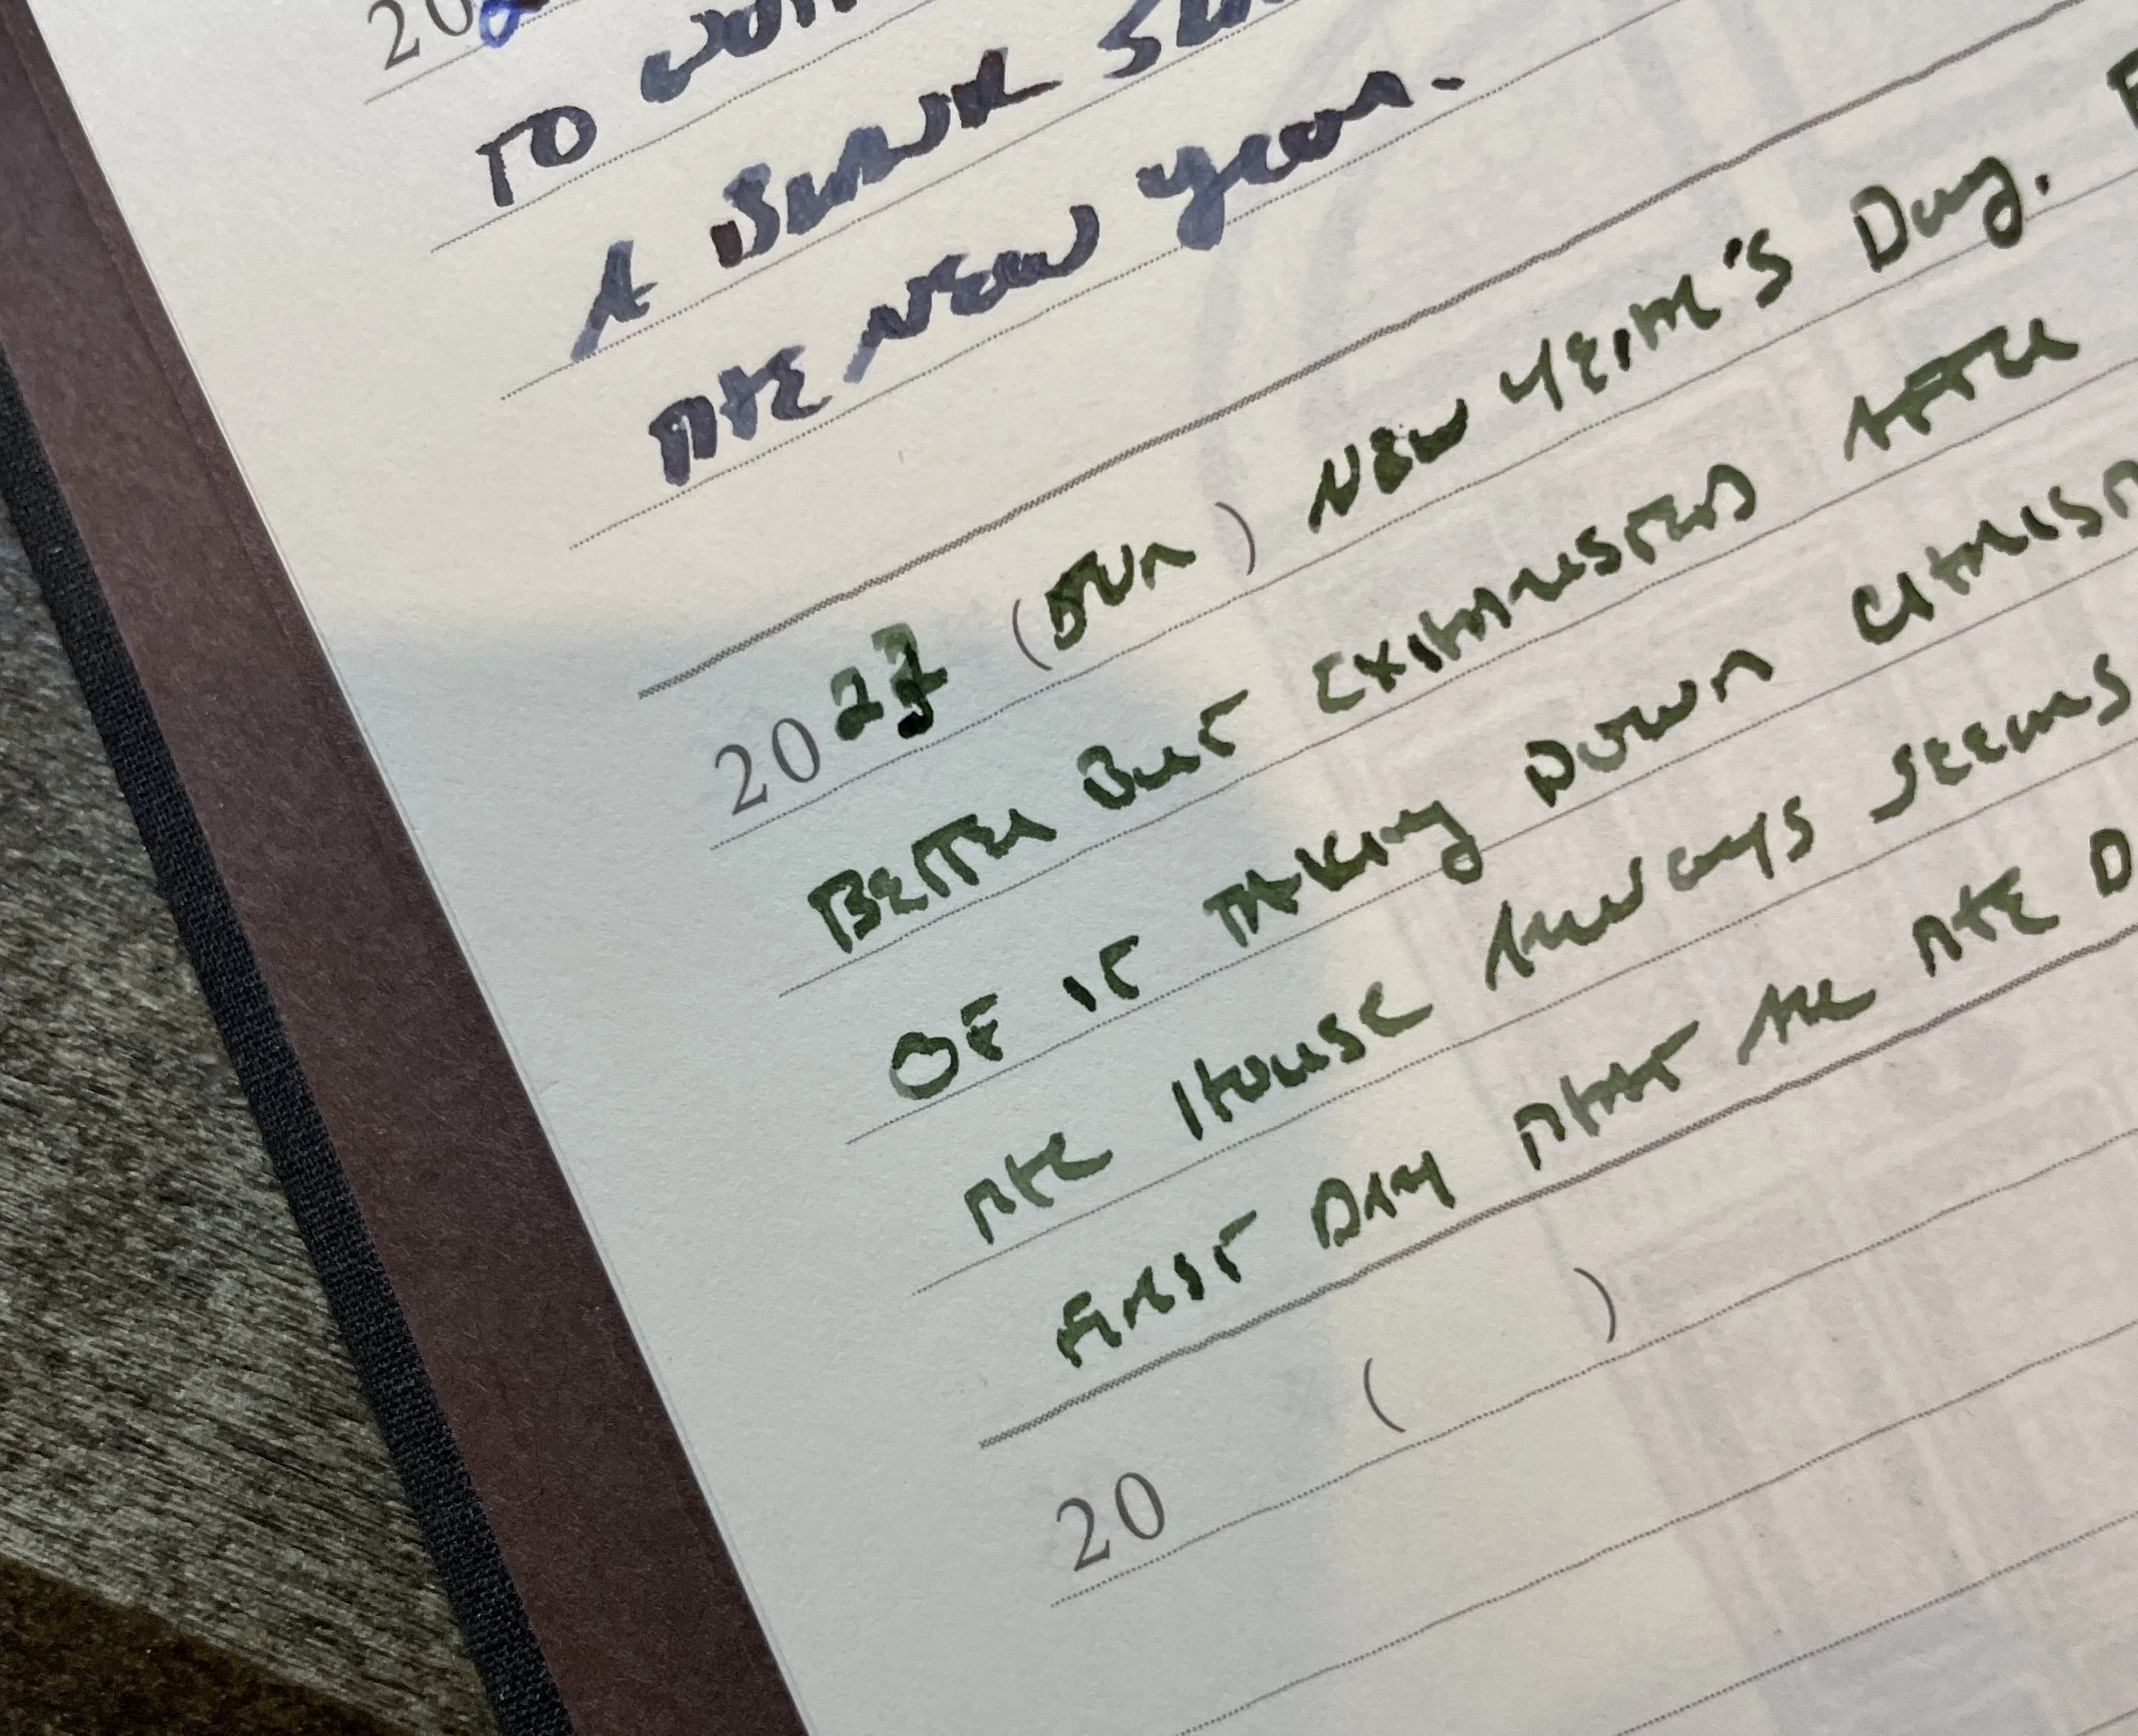 20
TO
A BLANK
THE NEW year.
2023 (SUN) NEW YEAR'S Day.
BETTER BUT EXHAUSTED AFTER
OF IT TAKING DOWN
THE HOUSE ALWAYS SEEMS
FIRST DAY THAT ARE THE
20 ( )